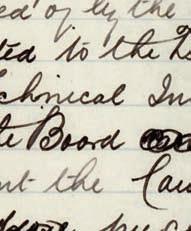 ed of by the
ted to the
echnical In
te Board
nt the Cau